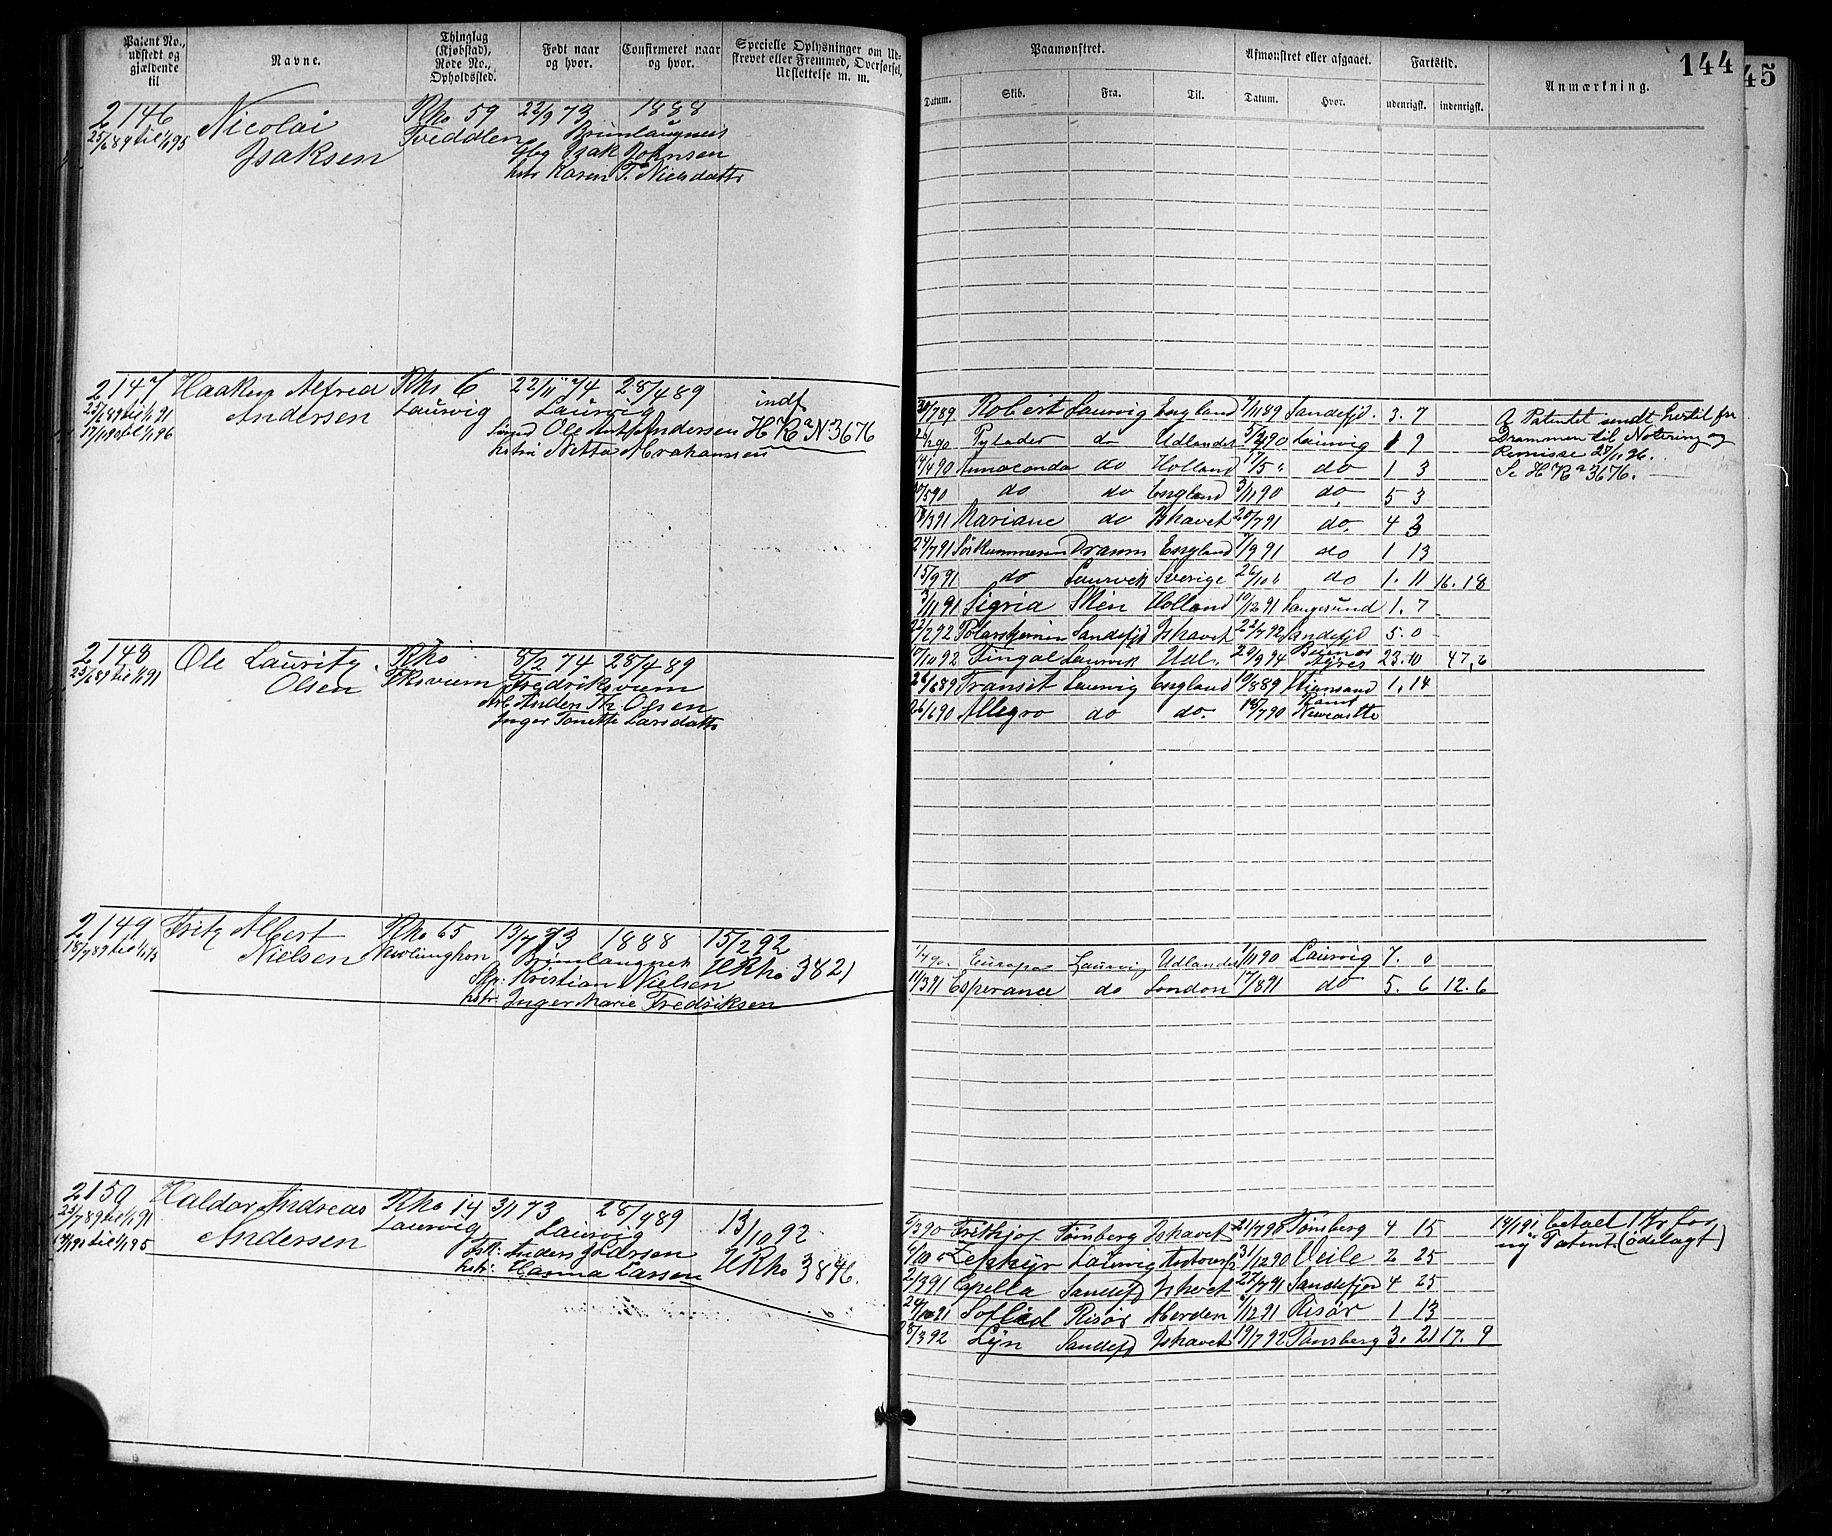 Patent No., udstedt og gjældende til
Navne.
Thinglag (Kjøbstad), Rode No., Opholdssted.
Født naar og hvor.
Confirmeret naar og hvor.
Specielle Oplysninger om Udskrevet eller Fremmed, Overførsel, Udslettelse m. m.
2146 Nicolai Rko 59 22/9 73 1888
25/6 89 til 1/1 95 Isaksen Treddlen Brunlaugnes
Isak Johnsen
hstr Karen T. Nielsdatter
2147 Haakon Alfred Rko 6 22/11 74 28/4 89 indf
25/6 89 til 1/1 91 Andersen Laurvig Laurvig H Ra No 3676
til 1/1 96 Ole Ant. Andersen
hstru Netta Abrahamsen
2148 Ole Lauritz Rko 8/2 74 28/4 89
25/6 89 til 1/1 91 Olsen Fredriksværn
Anders Th Olsen
Inger Tonette Larsdatter
2149 Fritz Albert Rko 65 13/7 73 1888 15/2 92
18/7 89 til Nielsen Brunlaugnes H Rko 3821
Kristian Nielsen
hstr Inger Marie Fredriksen
2150 Haldor Andreas Rko 14 3/1 73 28/4 89 13/10 92
25/7 89 til 1/1 91 Andersen Laurvig Laurvig H Rko 3846.
14/1 91 til 1/1 95 Anders Larsen
hstr: Hanna Larsen
144
45
Paamønstret.
Afmønstret eller afgaaet.
Fartstid.
Anmærkning.
Datum. Skib. Fra. Til. Datum. Hvor. udenrigsk. indenrigsk.
30/7 89 Robert Laurvig England 7/11 89 Sandefjd. 3. 7
Pylades do Udlandet Laurvig 1 9
14/4 90 Annaconda do Holland 17/5 " do 1 3
do do England 3/11 90 do 5 3
18/3 91 Mariane do Ishavet 20/7 91 do 4 3
24/7 91 Dramm England 7/9 91 do 1 13
15/9 91 do Laurvik Sverige 26/10 " do 1. 11 16. 18
3/11 91 Sigrid Skien Holland 10/12 91 Langesund 1. 7
22/2 92 Polarstjernen Sandefjd Ishavet 22/7 92 Sandefjd 5. 0
17/10 92 Fingal Laurvik Udl. 20/9 94 Buenos Ayres 23. 10 47, 6
A Patentet sendt hertil fra
Drammen til Notering og
Remisse 28/1 96.
Se H Ra 3676.
28/6 89 Transit Laurvig England 10/8 89 1, 14
26/6 90 Allegro do do. 18/7 90 Newcastle
1/4 90. Europa Laurvig Udlandet 1/11 90 Laurvig 7. 0
11/3 91 Esperance do London 17/8 91 do 5. 6 12. 6
6/3 90 Frithjof Tønsberg Ishavet 21/7 90 Tønsberg 4 15
4/10 " Zephyr Laurvig 31/12 90 Veile 2 25
2/3 91 Capella Sandefd Ishavet 27/7 91 Sandefjord 4 25
24/10 91 Risør Horden 6/12 91 Risør 1 13
28/3 92 Lyn Sandefd Ishavet 19/7 92 Tønsberg 3. 21 17. 9
14/1 91 betalt 1 Kr for
ny Patent. (ødelagt)